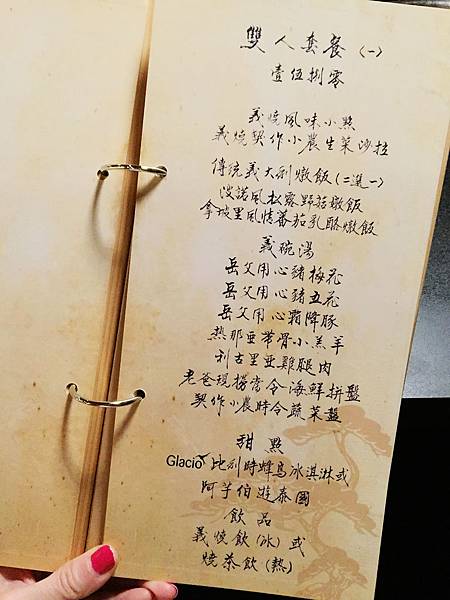 雙人套餐(一)
壹伍捌零
義燒風味小點
義燒契作小農生菜沙拉
傳統義大利燉飯(二選一)
波諾風松露野菇燉飯
拿坡里風情蕃茄乳酪燉飯
義碗湯
岳父用心豬梅花
岳父用心豬五花
岳父用心霜降豚
熱那亞帶骨小羔羊
利古里亞雞腿肉
老爸現撈當令海鮮拼盤
契作小農時令蔬菜盤
甜點
Glacio 比利時蜂鳥冰淇淋或
阿芋伯遊泰國
飲品
義燒飲(冰)或
燒茶飲(熱)